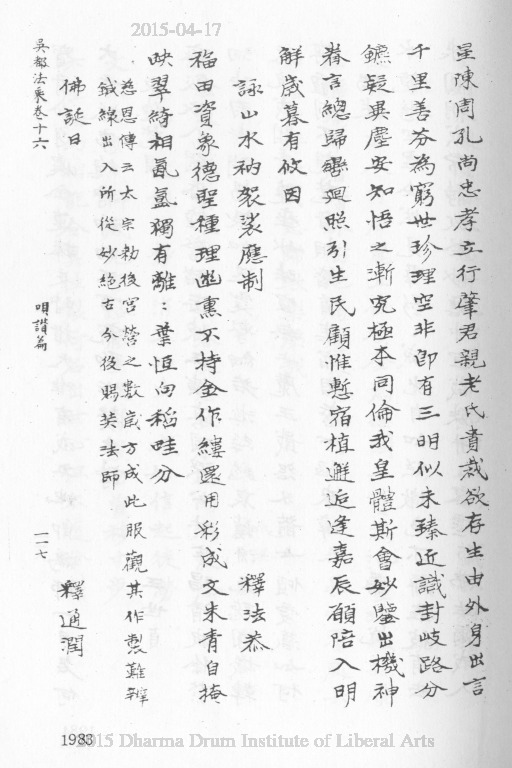 2015-04-17
星陳周孔尚忠孝立行肇君親老氏貴裁欲存生由外身出言
千里善芬為窮世珍理空非即有三明似未臻近識封岐路分
鑣疑異塵安知悟之漸究極本同倫我皇體斯會妙鑒出機神
眷言總歸轡迴照引生民顧惟慙宿植邂逅逢嘉辰願陪入明
解歲暮有攸因
詠山水衲袈裟應制
釋法恭
福田資象德聖種理幽熏不持金作縷還用彩成文朱青自掩
映翠綺相氤氳獨有離：葉恒向稻畦分
慈恩傳云太宗勅後宮營之數歲方成此服觀其作製難辨
鍼線出入所從妙絕古今後賜英法師
佛誕日
釋通潤
吳都法乘卷十六
唄讚篇
一一七
1983
2015 Dharma Drum Institute of Liberal Arts